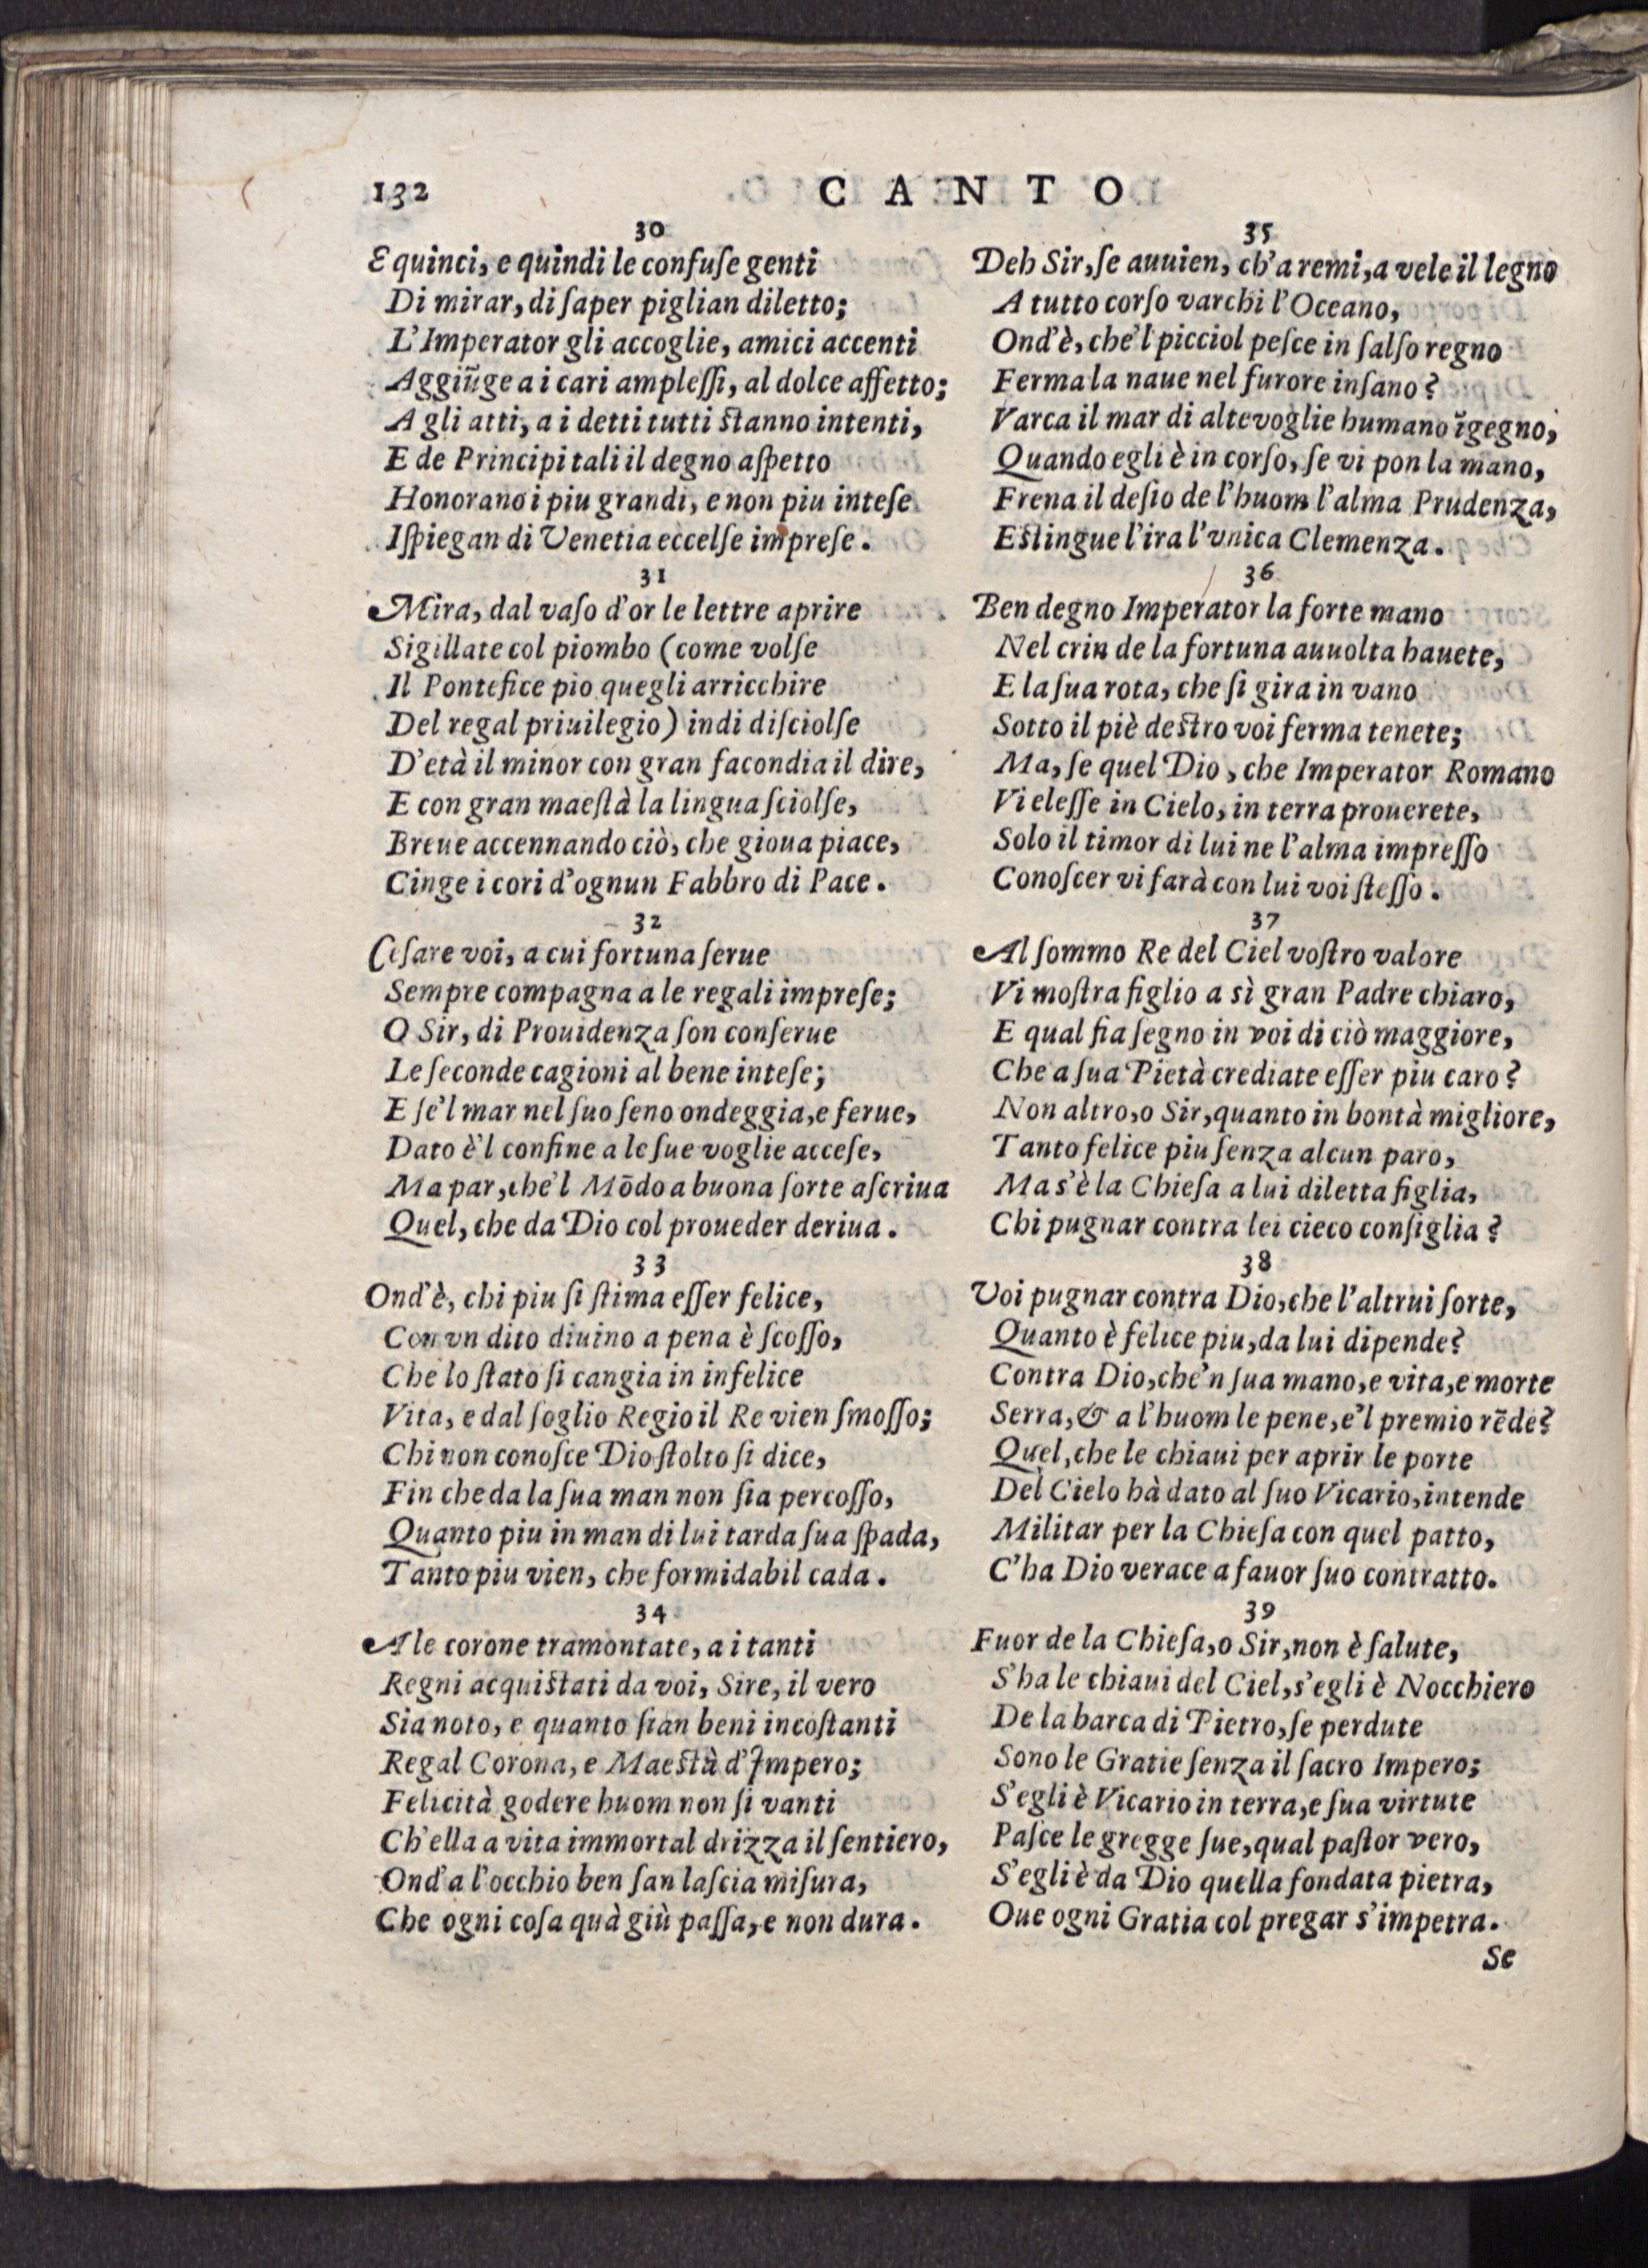 132
CANTO
30
E quinci, e quindi le confuſe genti
Di mirar, di ſaper piglian diletto;
L'Imperator gli accoglie, amici accenti
Aggiũge a i cari ampleſſi, al dolce affetto;
A gli atti, a i detti tutti stanno intenti,
E de Principi tali il degno aſpetto
Honorano i piu grandi, e non piu inteſe
Iſpiegan di Venetia eccelſe impreſe.
31
Mira, dal vaſo d'or le lettre aprire
Sigillate col piombo (come volſe
Il Pontefice pio quegli arricchire
Del regal priuilegio) indi diſciolſe
D'età il minor con gran facondia il dire,
E con gran maeſtà la lingua ſciolſe,
Breue accennando ciò, che gioua piace,
Cinge i cori d'ognun Fabbro di Pace.
32
Ceſare voi, a cui fortuna ſerue
Sempre compagna a le regali impreſe;
O Sir, di Prouidenza ſon conſerue
Le ſeconde cagioni al bene inteſe;
E ſe'l mar nel ſuo ſeno ondeggia, e ferue,
Dato è'l confine a le ſue voglie acceſe,
Ma par, che'l Mõdo a buona ſorte aſcriua
Quel, che da Dio col proueder deriua.
33
Ond'è, chi piu ſi ſtima eſſer felice,
Con vn dito diuino a pena è ſcoſſo,
Che lo ſtato ſi cangia in infelice
Vita, e dal ſoglio Regio il Re vien ſmoſſo;
Chi non conoſce Dio ſtolto ſi dice,
Fin che da la ſua man non ſia percoſſo,
Quanto piu in man di lui tarda ſua ſpada,
Tanto piu vien, che formidabil cada.
34
A le corone tramontate, a i tanti
Regni acquistati da voi, Sire, il vero
Sia noto, e quanto ſian beni incoſtanti
Regal Corona, e Maestà d'Impero;
Felicità godere huom non ſi vanti
Ch'ella a vita immortal drizza il ſentiero,
Ond'a l'occhio ben ſan laſcia miſura,
Che ogni coſa quà giù paſſa, e non dura.
35
Deh Sir, ſe auuien, ch'a remi, a vele il legno
A tutto corſo varchi l'Oceano,
Ond'è, che'l picciol peſce in ſalſo regno
Ferma la naue nel furore inſano?
Varca il mar di alte voglie humano ĩgegno,
Quando egli è in corſo, ſe vi pon la mano,
Frena il deſio de l'huom l'alma Prudenza,
Estingue l'ira l'vnica Clemenza.
36
Ben degno Imperator la forte mano
Nel crin de la fortuna auuolta hauete,
E la ſua rota, che ſi gira in vano
Sotto il piè destro voi ferma tenete;
Ma, ſe quel Dio, che Imperator Romano
Vi eleſſe in Cielo, in terra prouerete,
Solo il timor di lui ne l'alma impreſſo
Conoſcer vi farà con lui voi ſteſſo.
37
Al ſommo Re del Ciel voſtro valore
Vi moſtra figlio a sì gran Padre chiaro,
E qual fia ſegno in voi di ciò maggiore,
Che a ſua Pietà crediate eſſer piu caro?
Non altro, o Sir, quanto in bontà migliore,
Tanto felice piu ſenza alcun paro,
Ma s'è la Chieſa a lui diletta figlia,
Chi pugnar contra lei cieco conſiglia?
38
Voi pugnar contra Dio, che l'altrui ſorte,
Quanto è felice piu, da lui dipende?
Contra Dio, che'n ſua mano, e vita, e morte
Serra, & a l'huom le pene, e'l premio rẽde?
Quel, che le chiaui per aprir le porte
Del Cielo hà dato al ſuo Vicario, intende
Militar per la Chieſa con quel patto,
C'ha Dio verace a fauor ſuo contratto.
39
Fuor de la Chieſa, o Sir, non è ſalute,
S'ha le chiaui del Ciel, s'egli è Nocchiero
De la barca di Pietro, ſe perdute
Sono le Gratie ſenza il ſacro Impero;
S'egli è Vicario in terra, e ſua virtute
Paſce le gregge ſue, qual paſtor vero,
S'egli è da Dio quella fondata pietra,
Oue ogni Gratia col pregar s'impetra.
Se